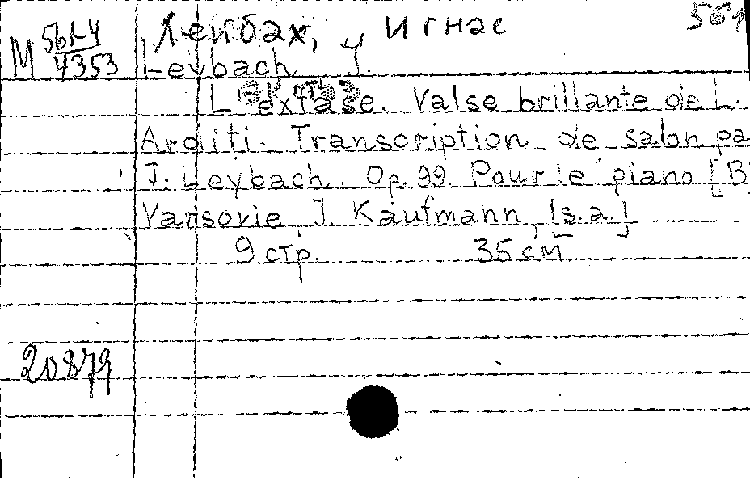 561-4 Лейбах, Игнас 561
М 4353 Leybach J.
L'extase. Valse brillante de L.
Arditi. Transcription de salon pa
J. Leybach. Op. 99. Pour le piano [В
Varsovie, J. Kaufmann, [s.a.]
9 стр. 35 см
20879